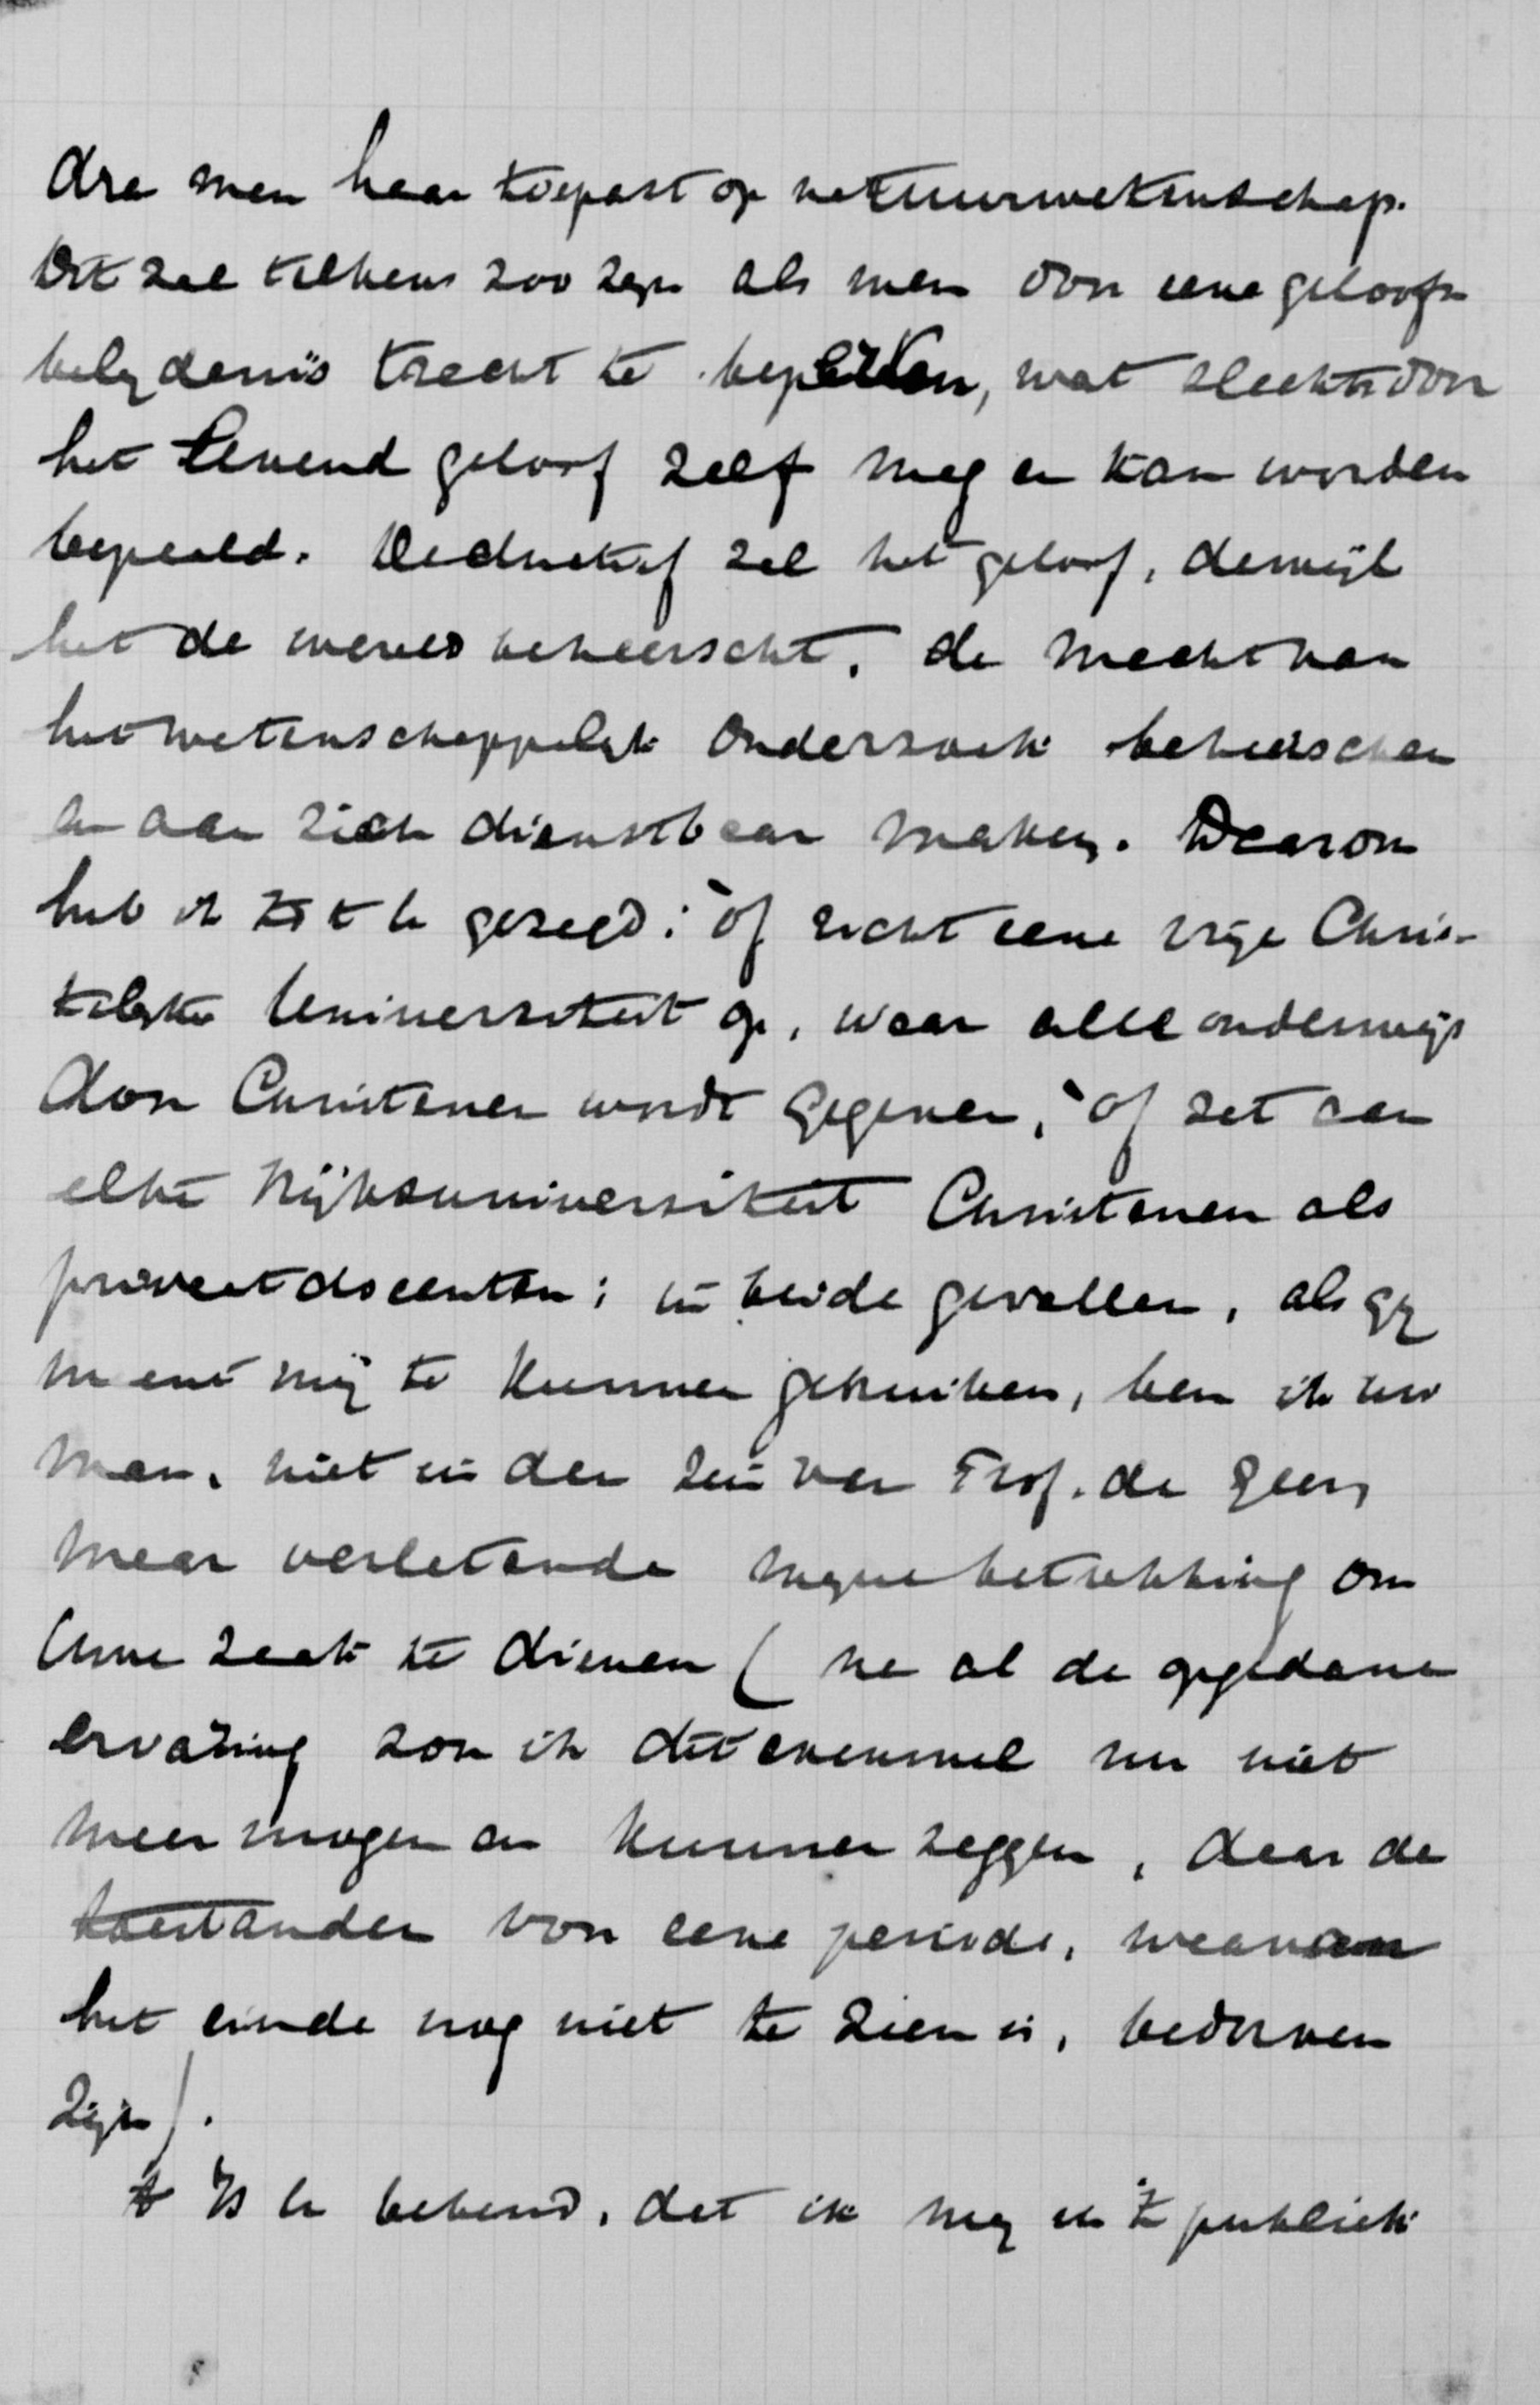 dra men haar toepast op natuurwetenschap.
Dit zal telkens zoo zijn als men door eene geloofs
belydenis tracht te beperken, wat slechts door
het levend geloof zelf mag en kan worden
bepaald. Deductief zal het geloof, derwijl
het de wereld beheerscht, de macht van
het wetenschappelyk onderzoek beheerschen
en aan zich dienstbaar maken. Daarom
heb ik tot U gezegd: òf richt eene vrije Chris-
telyke Universiteit op, waar alle onderwijs
door Christenen wordt gegeven, òf zet aan
elke Rijksuniversiteit Christenen als
privaatdocenten; in beide gevallen, als gy
meent mij te kunnen gebruiken, ben ik uw
man, niet in den zin van Prof. de Geer,
maar verlatende myne betrekking om
Uwe zaak te dienen (na al de opgedane
ervaring zou ik dit evenwel nu niet
meer mogen en kunnen zeggen, daar de
toestanden voor eene periode, waarvan
het einde nog niet te zien is, bedorven
zijn).
't Is U bekend, dat ik my in 't publiek